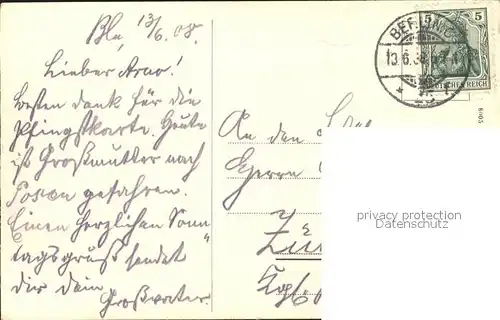 Bln, 13/6. 08.
Lieber Arno!
Besten Dank für die
Pfingstkarte. Heute
ist Großmutter nach
Posen gefahren.
Einen herzlichen Sonn
tagsgruß sendet
dir dein
Großvater.
An den
Herrn
Kgl.
BERLIN
13.6.08
5
5
DEUTSCHES REICH
privacy protection
Datenschutz